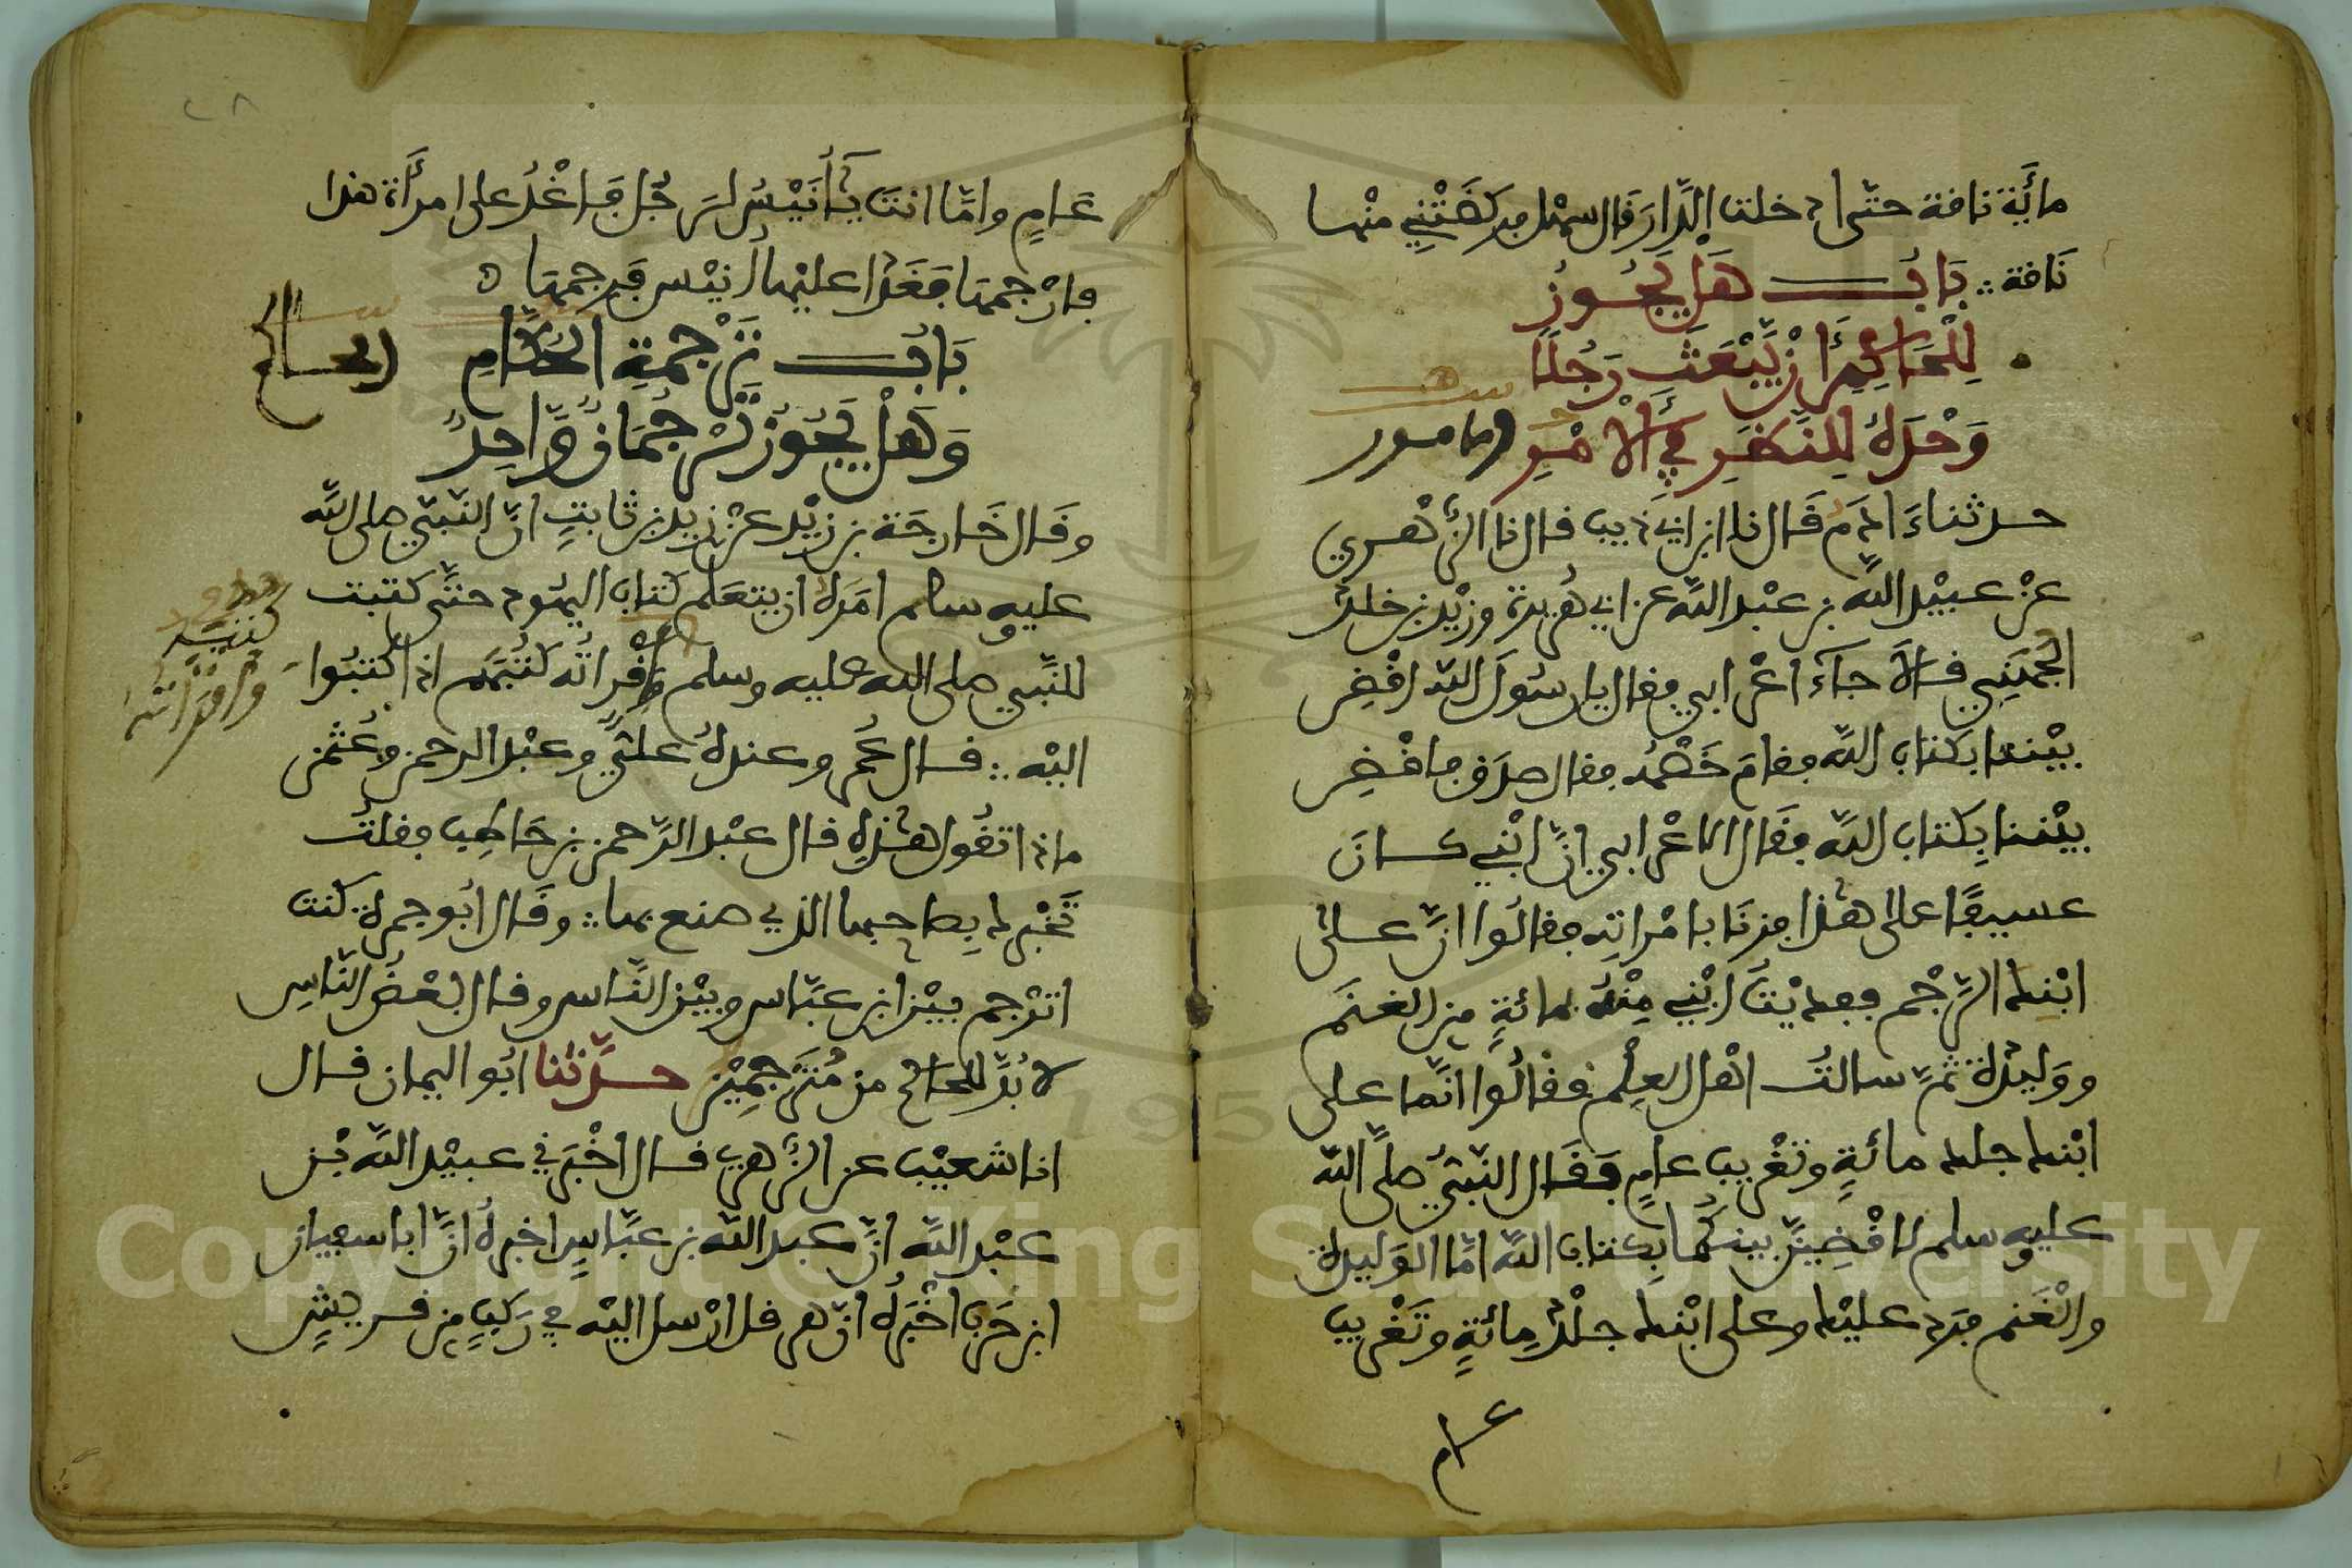 مائة ناقة حتى ادخلت الدار قال سهل فركضتني منها
ناقة باب هل يجوز
للحاكم ان يبعث رجلا
وحده للنظر في الامر
الامور
حدثنا ءادم قال نا ابن ابي ذيب قال نا الزهري
عن عبيد الله بن عبد الله عن ابي هريرة وزيد بن خلد
الجهني قالا جآء اعرابي فقال يا رسول الله اقض
بيننا بكتاب الله فقام خصمه فقال صدق فاقض
بيننا بكتاب الله فقال الاعرابي ان ابني كان
عسيفا على هذا فزنا بامراته فقالوا ان على
ابنك الرجم ففديت ابني منه بمائة من الغنم
ووليدة ثم سالت اهل العلم فقالوا انما على
ابنك جلد مائة وتغريب عام فقال النبي صلى الله
عليه وسلم لاقضين بينكما بكتاب الله اما الوليدة
والغنم فرد عليك وعلى ابنك جلد مائة وتغريب
عام
٤٨
عام واما انت يا أنيس لرجل فاغد على امرأة هذا
فارجمها فغدا عليها أنيس فرجمها
باب ترجمة الحكام
الحاكم
وهل يجوز ترجمان واحد
وقال خارجة بن زيد عن زيد بن ثابت ان النبي صلى الله
عليه وسلم امره ان يتعلم كتاب اليهود حتى كتبت
للنبي صلى الله عليه وسلم وأقراته كتبهم اذا كتبوا
كتبه
وأقراته
اليه قال عمر وعنده علي وعبد الرحمن وعثمن
ماذا تقول هذه قال عبد الرحمن بن حاطب فقلت
تخبرك بصاحبها الذي صنع بها وقال ابو جمرة كنت
اترجم بين ابن عباس وبين الناس وقال بعض الناس
لا بد للحاكم من مترجمين حدثنا ابو اليمان قال
انا شعيب عن الزهري قال اخبرني عبيد الله بن
عبد الله ان عبد الله بن عباس اخبره ان ابا سفيان
ابن حرب اخبره ان هرقل ارسل اليه في ركب من قريش
Copyright © King Saud University
195